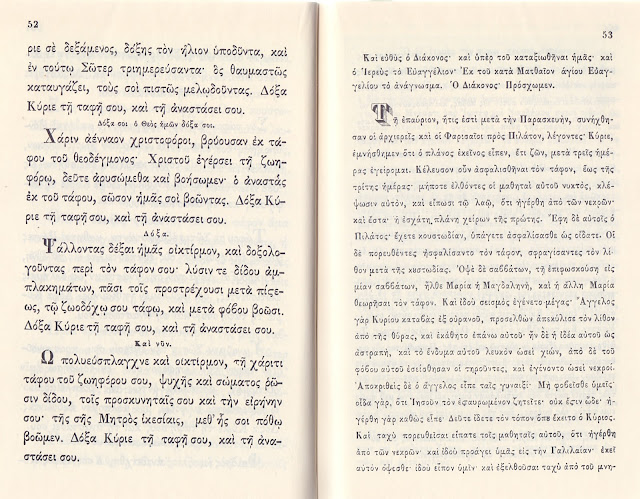 52
ριε σὲ δεξάμενος, δόξης τὸν ἥλιον ὑποδῦντα, καὶ
ἐν τούτῳ Σῶτερ τριημερεύσαντα· ὃς θαυμαστῶς
καταυγάζει, τοὺς σοὶ πιστῶς μελῳδοῦντας. Δόξα
Κύριε τῇ ταφῇ σου, καὶ τῇ ἀναστάσει σου.
Δόξα σοι ὁ Θεὸς ἡμῶν δόξα σοι.
Χάριν ἀένναον χριστοφόροι, βρύουσαν ἐκ τά-
φου τοῦ θεοδέγμονος· Χριστοῦ ἐγέρσει τῇ ζωη-
φόρῳ, δεῦτε ἀρυσώμεθα καὶ βοήσωμεν· ὁ ἀναστὰς
ἐκ τοῦ τάφου, σῶσον ἡμᾶς σοὶ βοῶντας. Δόξα Κύ-
ριε τῇ ταφῇ σου, καὶ τῇ ἀναστάσει σου.
Δόξα.
Ψάλλοντας δέξαι ἡμᾶς οἰκτίρμον, καὶ δοξολο-
γοῦντας περὶ τὸν τάφον σου· λύσιν τε δίδου ἀμ-
πλακημάτων, πᾶσι τοῖς προστρέχουσι μετὰ πίσε-
ως, τῷ ζωοδόχῳ σου τάφῳ, καὶ μετὰ φόβου βοῶσι.
Δόξα Κύριε τῇ ταφῇ σου, καὶ τῇ ἀναστάσει σου.
Καὶ νῦν.
Ὦ πολυεύσπλαγχνε καὶ οἰκτίρμον, τῇ χάριτι
τάφου τοῦ ζωηφόρου σου, ψυχῆς καὶ σώματος ῥῶ-
σιν δίδου, τοῖς προσκυνηταῖς σου καὶ τὴν εἰρήνην
σου· τῆς σῆς Μητρὸς ἱκεσίαις, μεθ' ἧς σοι πόθῳ
βοῶμεν. Δόξα Κύριε τῇ ταφῇ σου, καὶ τῇ ἀνα-
στάσει σου.
53
Καὶ εὐθὺς ὁ Διάκονος· καὶ ὑπὲρ τοῦ καταξιωθῆναι ἡμᾶς· καὶ
ὁ Ἱερεὺς τὸ Εὐαγγέλιον· Ἐκ τοῦ κατὰ Ματθαῖον ἁγίου Εὐαγ-
γελίου τὸ ἀνάγνωσμα. Ὁ Διάκονος· Πρόσχωμεν.
Τῇ ἐπαύριον, ἥτις ἐστὶ μετὰ τὴν Παρασκευήν, συνήχθη-
σαν οἱ ἀρχιερεῖς καὶ οἱ Φαρισαῖοι πρὸς Πιλᾶτον, λέγοντες· Κύριε,
ἐμνήσθημεν ὅτι ὁ πλάνος ἐκεῖνος εἶπεν, ἔτι ζῶν, μετὰ τρεῖς ἡμέ-
ρας ἐγείρομαι. Κέλευσον οὖν ἀσφαλισθῆναι τὸν τάφον, ἕως τῆς
τρίτης ἡμέρας· μήποτε ἐλθόντες οἱ μαθηταὶ αὐτοῦ νυκτός, κλέ-
ψωσιν αὐτόν, καὶ εἴπωσι τῷ λαῷ, ὅτι ἠγέρθη ἀπὸ τῶν νεκρῶν·
καὶ ἔσται ἡ ἐσχάτη πλάνη χείρων τῆς πρώτης. Ἔφη δὲ αὐτοῖς ὁ
Πιλᾶτος· ἔχετε κουστωδίαν, ὑπάγετε ἀσφαλίσασθε ὡς οἴδατε. Οἱ
δὲ πορευθέντες ἠσφαλίσαντο τὸν τάφον, σφραγίσαντες τὸν λί-
θον μετὰ τῆς κουστωδίας. Ὀψὲ δὲ σαββάτων, τῇ ἐπιφωσκούσῃ εἰς
μίαν σαββάτων, ἦλθε Μαρία ἡ Μαγδαληνή, καὶ ἡ ἄλλη Μαρία
θεωρῆσαι τὸν τάφον. Καὶ ἰδοὺ σεισμὸς ἐγένετο μέγας· Ἄγγελος
γὰρ Κυρίου καταβὰς ἐξ οὐρανοῦ, προσελθὼν ἀπεκύλισε τὸν λίθον
ἀπὸ τῆς θύρας, καὶ ἐκάθητο ἐπάνω αὐτοῦ· ἦν δὲ ἡ ἰδέα αὐτοῦ ὡς
ἀστραπή, καὶ τὸ ἔνδυμα αὐτοῦ λευκὸν ὡσεὶ χιών, ἀπὸ δὲ τοῦ
φόβου αὐτοῦ ἐσείσθησαν οἱ τηροῦντες, καὶ ἐγένοντο ὡσεὶ νεκροί.
Ἀποκριθεὶς δὲ ὁ ἄγγελος εἶπε ταῖς γυναιξί· Μὴ φοβεῖσθε ὑμεῖς·
οἶδα γάρ, ὅτι Ἰησοῦν τὸν ἐσταυρωμένον ζητεῖτε· οὐκ ἔςιν ὧδε· ἠ-
γέρθη γὰρ καθὼς εἶπε· Δεῦτε ἴδετε τὸν τόπον ὅπου ἔκειτο ὁ Κύριος.
Καὶ ταχὺ πορευθεῖσαι εἴπατε τοῖς μαθηταῖς αὐτοῦ, ὅτι ἠγέρθη
ἀπὸ τῶν νεκρῶν· καὶ ἰδοὺ προάγει ὑμᾶς εἰς τὴν Γαλιλαίαν· ἐκεῖ
αὐτὸν ὄψεσθε· ἰδοὺ εἶπον ὑμῖν· καὶ ἐξελθοῦσαι ταχὺ ἀπὸ τοῦ μνη-